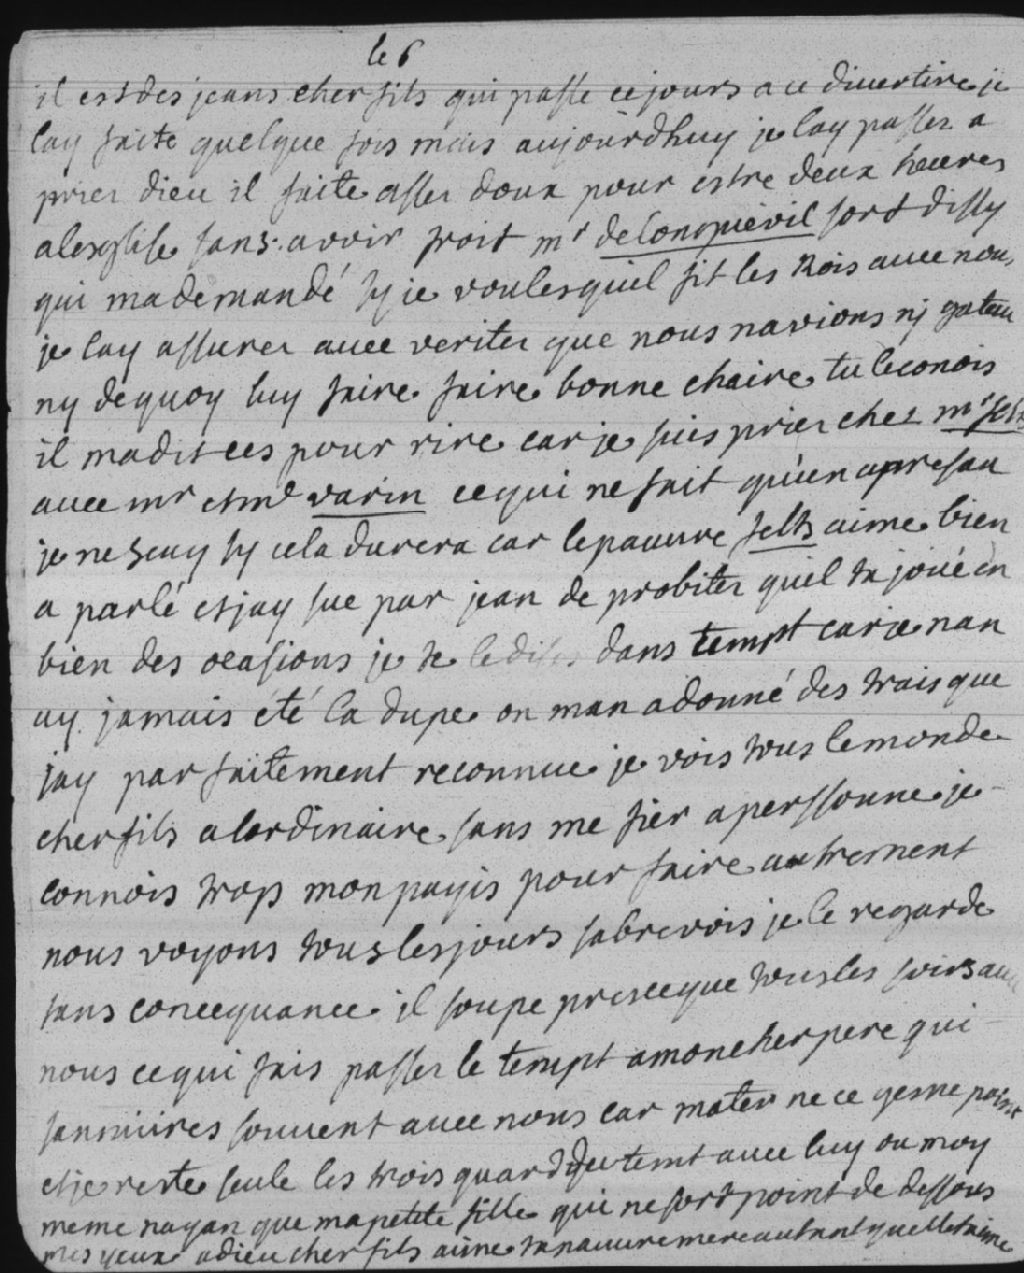 le 6
il est des jeans cher fils qui passe ce jours a ce divertire je
lay faite quelque fois mais aujourdhuy je lay passer a
prier dieu il faite asser doux pour estre deux heures
aleglise sans avoir froit mr delongueuil sort dissy
qui ma demandé sy je voules quil fit les Rois avec nous
je lay assurer avec veriter que nous navions nj gateau
ny dequoy luy faire faire bonne chaire tu leconois
il madit ces pour rire car je suis prier chez mr felts
avec mr et me varin ce qui ne fait quen apresan
je ne scay sy cela durera car le pauvre felts aime bien
a parlé et jay sue par jean de probiter quil ta joué en
bien des ocasions je te le dises dans tempt car je nan
ay jamais été la dupe on man a donné des trais que
jay parfaitement reconnue je vois tous lemonde
cher fils a lordinaire sans me fier a perssonne je
connois trop mon payis pour faire autrement
nous voyons tous les jours sabrevois je le regarde
sans concequance il soupe prescque tous les soirs avec
nous ce qui fais passer le tempt a mon cher pere qui
sanniüres souvent avec nous car mater ne ce gesne point
et je reste seule les trois quard du temt avec luy ou moy
meme nayan que ma petite fille qui ne sort point de dessous
mes yeux adieu cher fils aime ta pauvre mere autant quelle taime